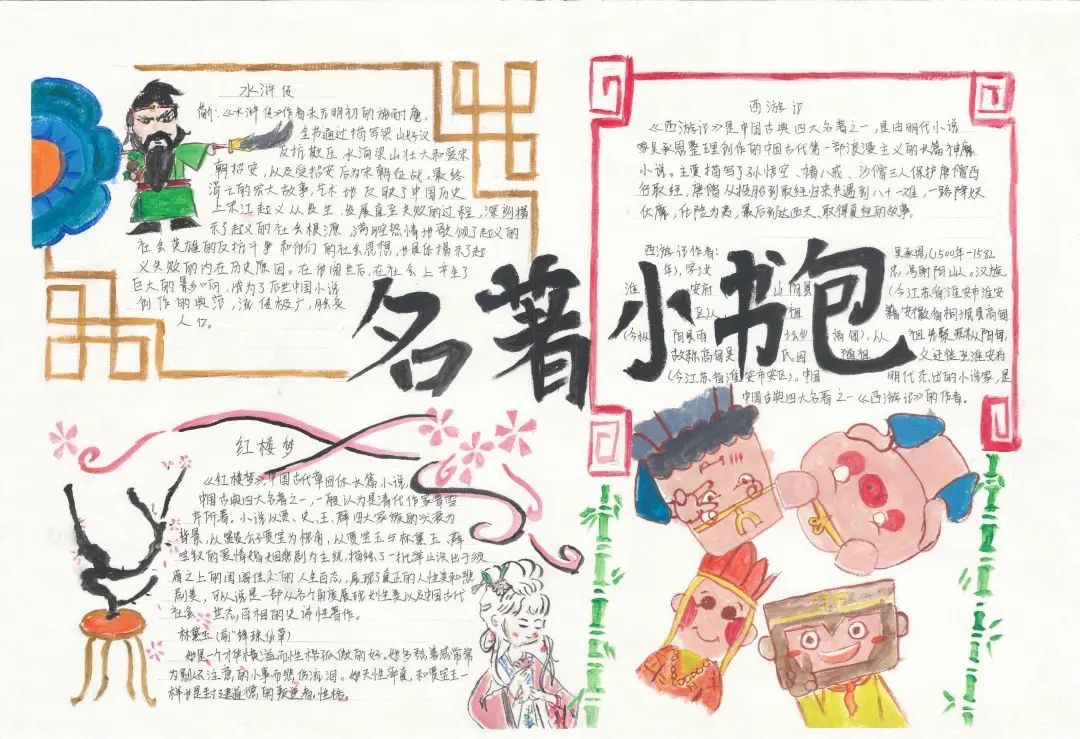 水浒传
简:《水浒传》作者未元明初的施耐庵,
全书通过描写梁山好汉
反抗欺压水泊梁山壮大和受宋
朝招安,以及受招安后为宋朝征战,最终
消亡的宏大故事,艺术地反映了中国历史
上宋江起义从发生,发展直至失败的过程,深刻揭
示了起义的社会根源,满腔热情地歌颂了起义的
社会英雄的反抗斗争和他们的社会思想,也具体揭示了起
义失败的内在历史原因。在问世后,在社会上产生了
巨大的影响,成为了后世中国小说
创作的典范,流传极广,脍炙
人口。
名著小书包
西游记
《西游记》是中国古典四大名著之一,是由明代小说
家吴承恩整理创作的中国古代第一部浪漫主义的长篇神魔
小说。主要描写了孙悟空、猪八戒、沙僧三人保护唐僧西
行取经,唐僧从投胎到取经归来共遇到八十一难,一路降妖
伏魔,化险为夷,最后到达西天、取得真经的故事。
西游记作者: 吴承恩,(1500年-1582
年),字汝 ,号射阳山人。汉族
淮安府 山阳县(今江苏省淮安市淮安
区)人, 祖籍安徽省桐城县高甸
(今枞阳县雨坛乡高甸),从 祖先聚居枞阳高甸,
故称高甸吴氏 因 祖 又迁徙至淮安府
(今江苏省淮安市淮安区)。中国 明代杰出的小说家,是
中国古典四大名著之一《西游记》的作者。
红楼梦
《红楼梦》中国古代章回体长篇小说,
中国古典四大名著之一,一般认为是清代作家曹雪
芹所著。小说以贾、史、王、薛四大家族的兴衰为
背景,以富贵公子贾宝为视角,以贾宝玉与林黛玉、薛
宝钗的爱情婚姻悲剧为主线,描绘了一批举止识出于须
眉之上的闺阁佳人的人生百态,展现真正的人性美和悲
剧美,可以说是一部从各个角度展现女性美以及中国古代
社会 世态百相的史诗性著作。
林黛玉(前"绛珠仙草)
她是一个才华横溢而性格孤傲的好。她多愁善感常常
为别人注意的小事而悲伤流泪。她天性率真,和贾宝玉一
样 是封建道儒的叛逆者,性格